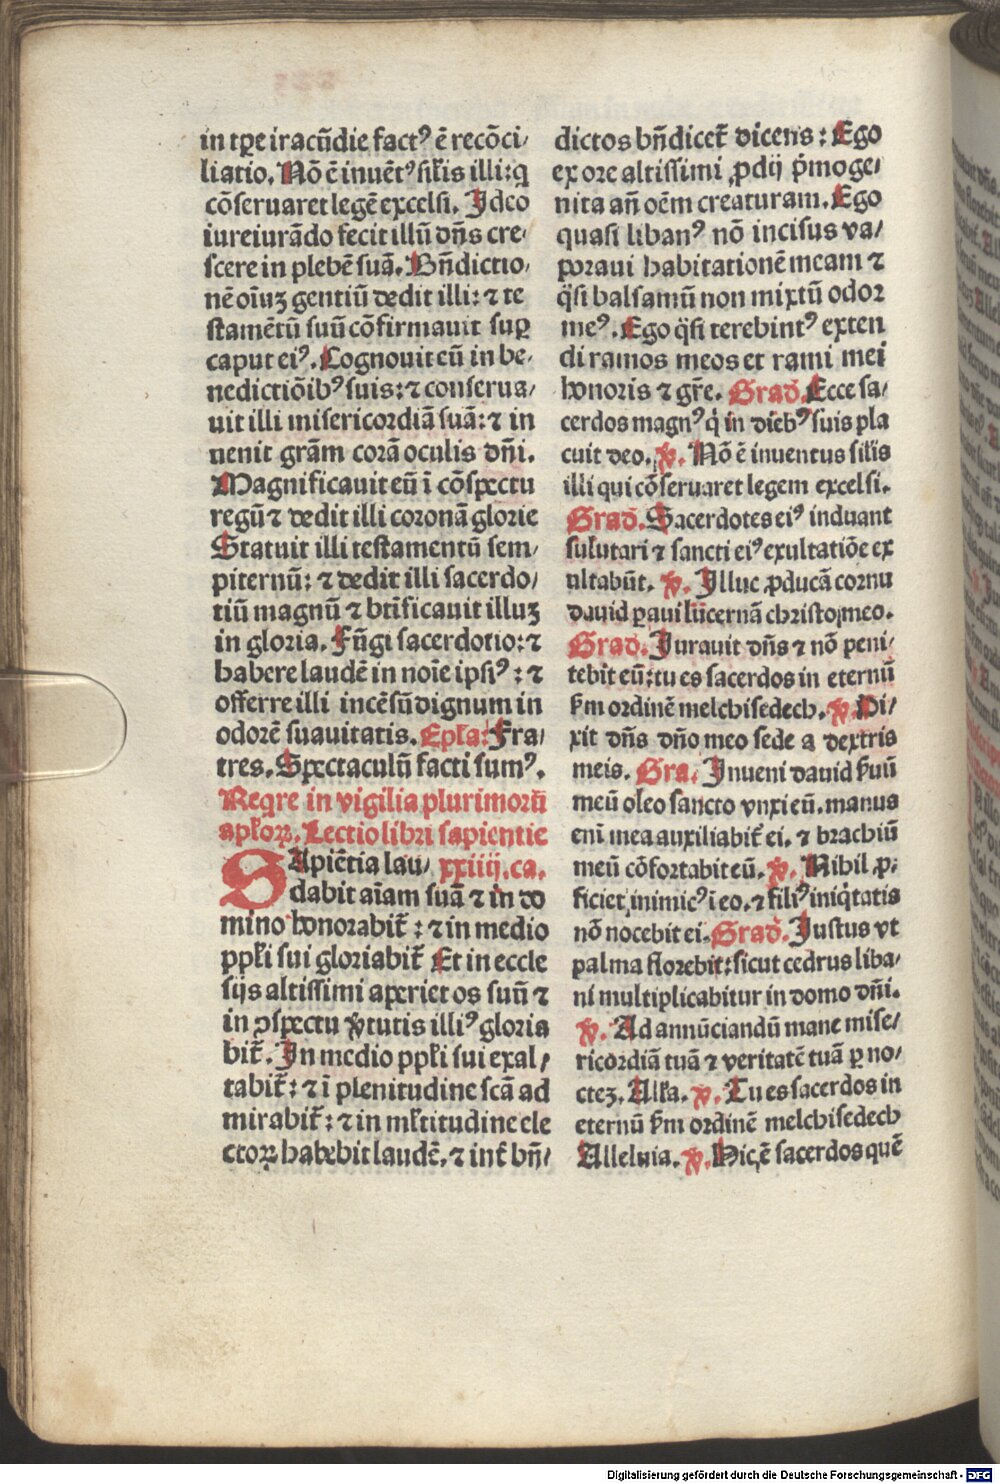 in tꝑe iracūdie factꝰ ē recōci⸗
liatio. Nō ē inuētꝰ silis illi: q
cōseruaret legē excelsi. Ideo
iureiurādo fecit illū dn̄s cre⸗
scere in plebē suā. Bn̄dictio⸗
nē oīuʒ gentiū dedit illi: ⁊ te
stamētū suū cōfirmauit suꝑ
caput eiꝰ. Cognouit eū in be⸗
nedictiōibꝰ suis: ⁊ conserua⸗
uit illi misericordiā suā: ⁊ in
uenit grām corā oculis dn̄i.
Magnificauit eū ī cōspectu
regū ⁊ dedit illi coronā glorie
Statuit illi testamentū sem⸗
piternū: ⁊ dedit illi sacerdo⸗
tiū magnū ⁊ btīficauit illuʒ
in gloria. Fūgi sacerdotio: ⁊
habere laudē in noīe ipsiꝰ: ⁊
offerre illi incēsū dignum in
odorē suauitatis. Epła: Fra⸗
tres. Spectaculū facti sumꝰ.
Reqre in vigilia plurimorū
apłoꝝ. Lectio libri sapientie
Sapiētia lau⸗ xxiiij. ca.
dabit aīam suā ⁊ in do
mino honorabit̄: ⁊ in medio
ppłi sui gloriabit̄ Et in eccle
sijs altissimi aperiet os suū ⁊
in ꝯspectu ꝟtutis illiꝰ gloria
bit̄. In medio ppłi sui exal⸗
tabit̄: ⁊ ī plenitudine scā ad
mirabit̄: ⁊ in młtitudine ele
ctoꝝ habebit laudē. ⁊ int̄ bn̄⸗
dictos bn̄dicet̄ dicens: Ego
ex ore altissimi ꝓdij p̄moge⸗
nita an̄ oēm creaturam. Ego
quasi libanꝰ nō incisus va⸗
poraui habitationē meam ⁊
q̄si balsamū non mixtū odor
meꝰ. Ego q̄si terebintꝰ exten
di ramos meos et rami mei
honoris ⁊ gr̄e. Grad̄. Ecce sa⸗
cerdos magnꝰ q̄ in diebꝰ suis pla
cuit deo. ℣. Nō ē inuentus silis
illi qui cōseruaret legem excelsi.
Grad̄. Sacerdotes eiꝰ induant
salutari ⁊ sancti eiꝰ exultatiōe ex
ultabūt. ℣. Illuc ꝓducā cornu
dauid paraui lucernā christo meo.
Grad̄. Iurauit dn̄s ⁊ nō peni⸗
tebit eū: tu es sacerdos in eternū
ẜm ordinē melchisedech. ℣. Di⸗
xit dn̄s dn̄o meo sede a dextris
meis. Gra. Inueni dauid ẜuū
meū oleo sancto vnxi eū. manus
enī mea auxiliabit̄ ei. ⁊ brachiū
meū cōfortabit eū. ℣. Nihil ꝓ⸗
ficiet inimicꝰ ī eo. ⁊ filiꝰ iniq̄tatis
nō nocebit ei. Grad̄. Iustus vt
palma florebit: sicut cedrus liba⸗
ni multiplicabitur in domo dn̄i.
℣. Ad annūciandū mane mise⸗
ricordiā tuā ⁊ veritatē tuā ꝑ no⸗
cteʒ. Alła. ℣. Tu es sacerdos in
eternū ẜm ordinē melchisedech
Alleluia. ℣. Hic ē sacerdos quē
Digitalisierung gefördert durch die Deutsche Forschungsgemeinschaft - DFG